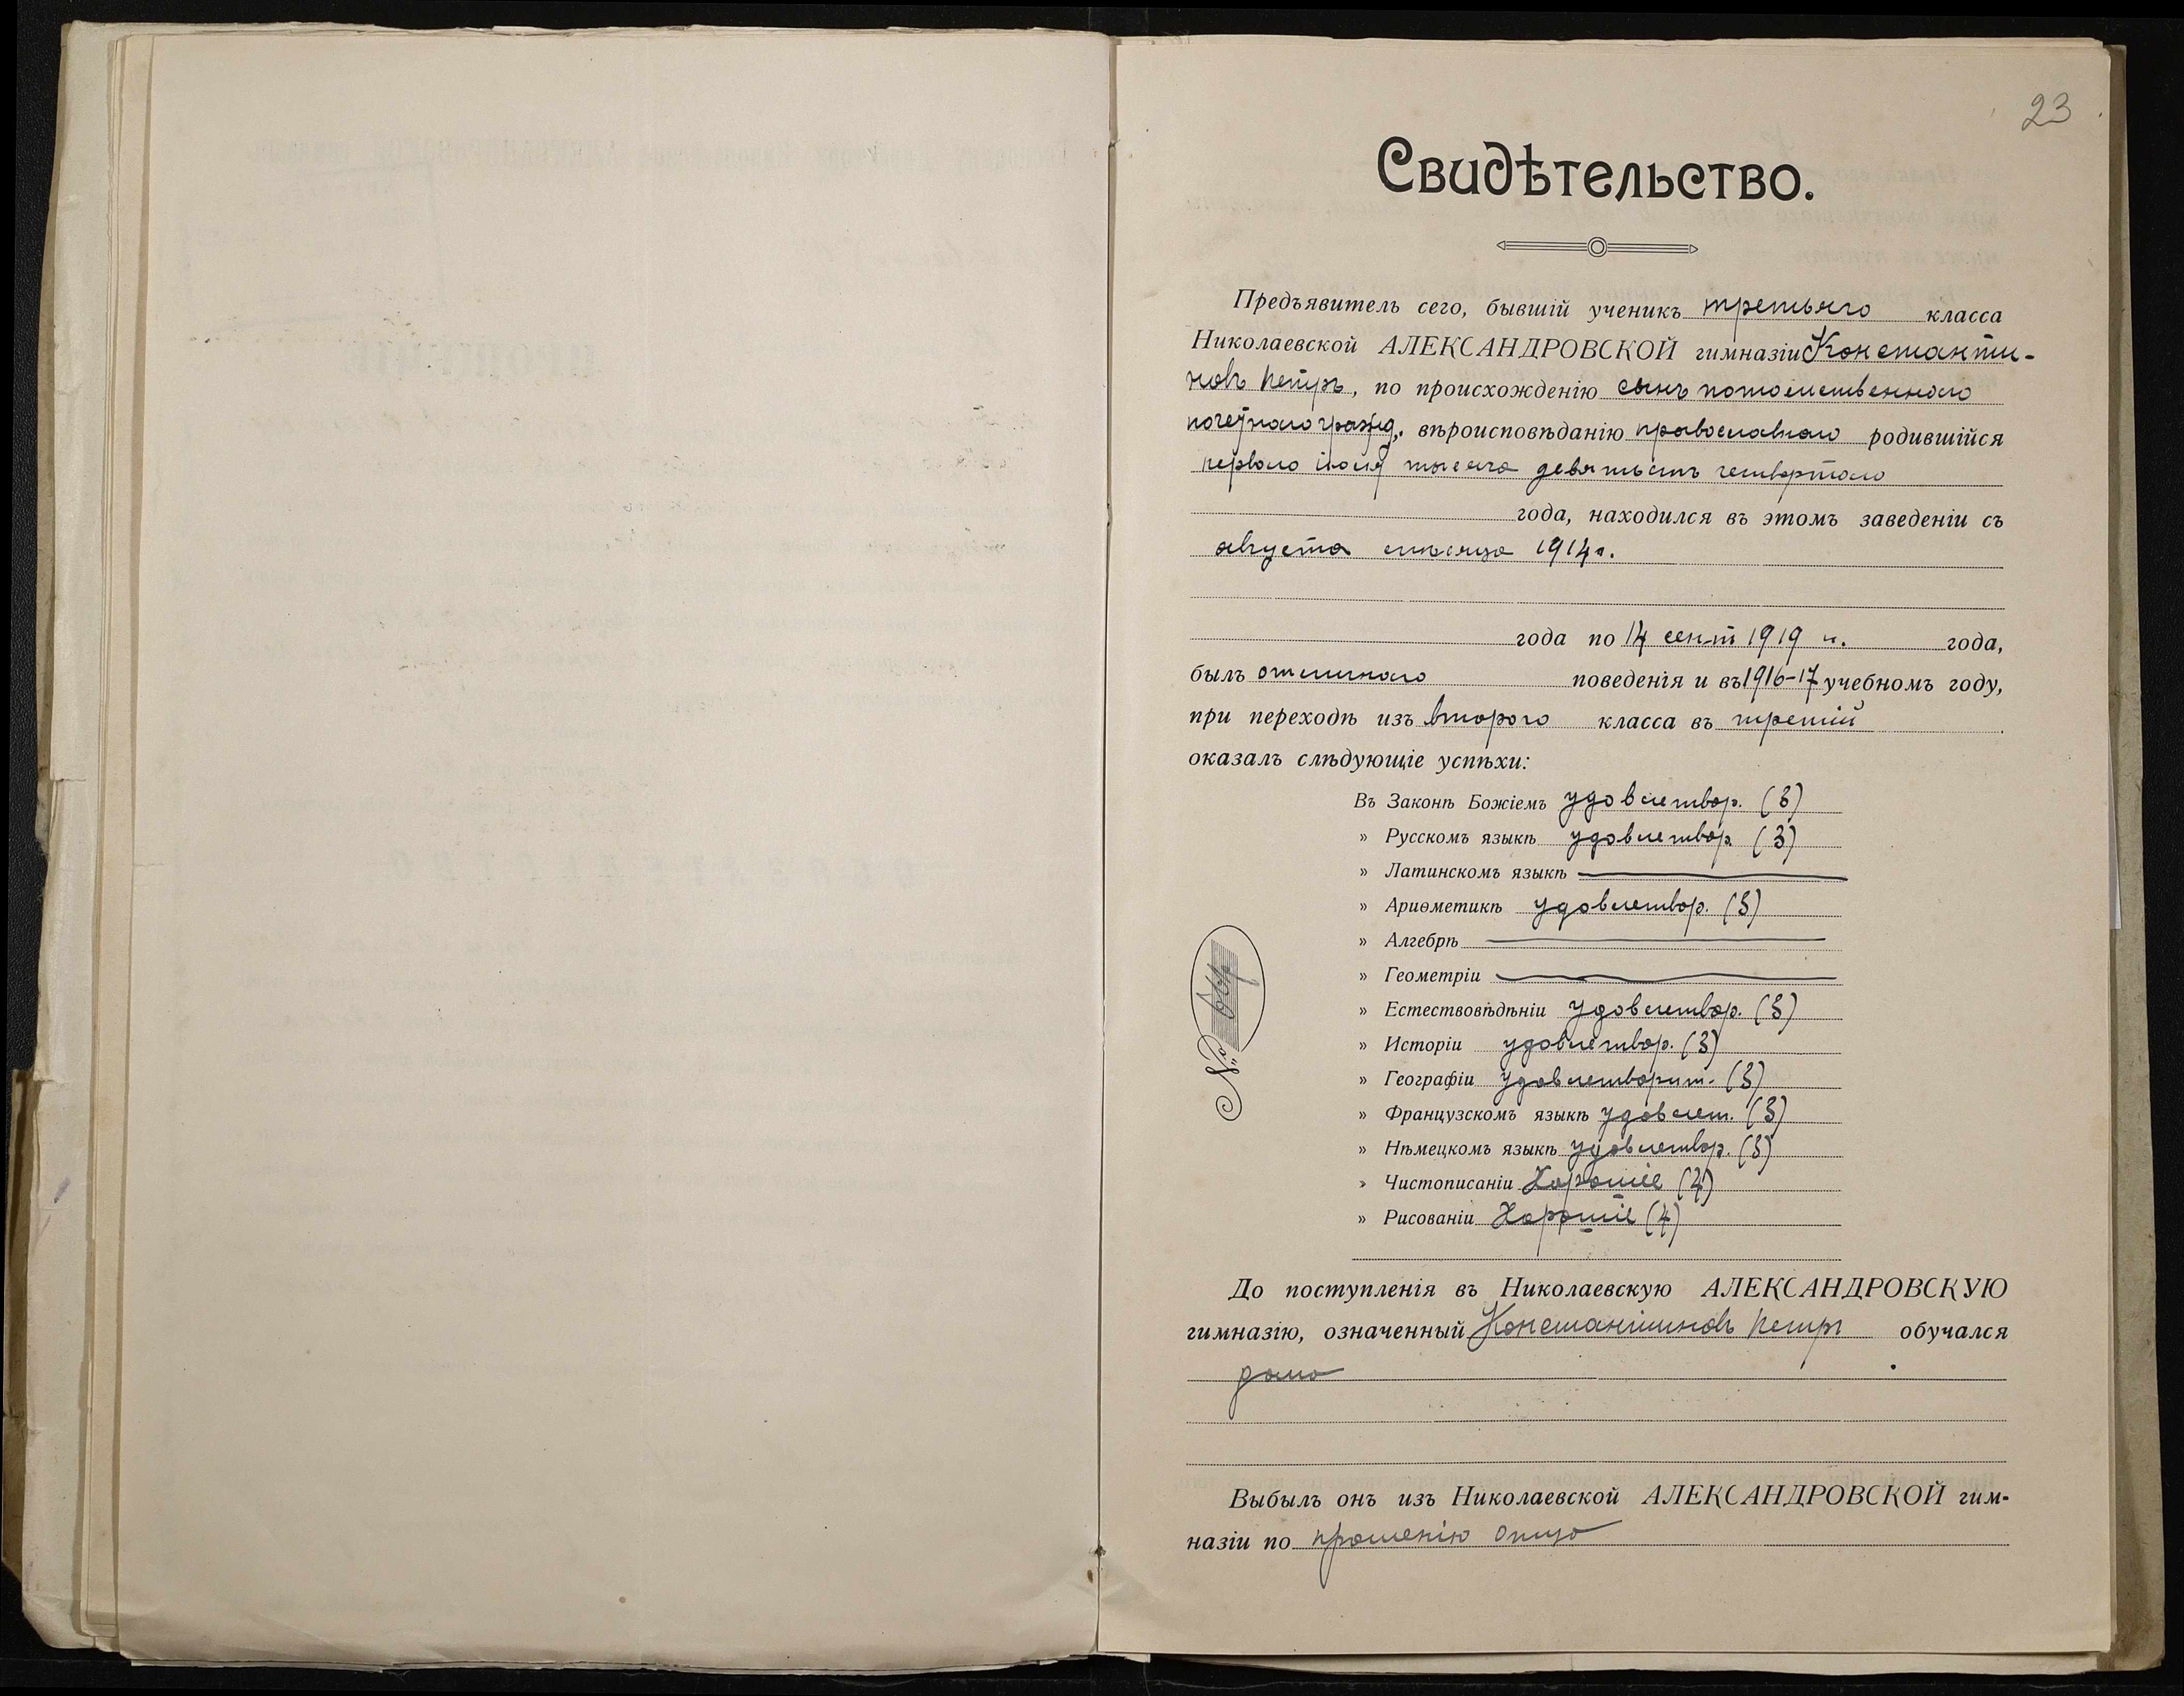 23
Свидѣтельство.
Предъявитель сего, бывшій ученикъ третьяго класса
Николаевской АЛЕКСАНДРОВСКОЙ гимназіи Константи-
новъ Петръ, по происхожденію сынъ потомственнаго
почетнаго гражд., вѣроисповѣданію православнаго родившійся
перваго іюля тысяча девятьсотъ четвертаго
года, находился въ этомъ заведеніи съ
августа мѣсяца 1914 г.
года по 14 сент 1919 г. года,
былъ отличнаго поведенія и въ 1916-17 учебномъ году,
при переходѣ изъ второго класса въ третій
оказалъ слѣдующіе успѣхи:
Въ Законѣ Божіемъ удовлетвор. (3)
» Русскомъ языкѣ удовлетвор. (3)
» Латинскомъ языкѣ
» Ариѳметикѣ удовлетвор. (3)
» Алгебрѣ
» Геометріи
» Естествовѣдѣніи удовлетвор. (3)
» Исторіи удовлетвор. (3)
» Географіи удовлетворит. (3)
» Французскомъ языкѣ удовлет. (3)
» Нѣмецкомъ языкѣ удовлетвор. (3)
» Чистописаніи Хорошіе (4)
» Рисованіи Хорошіе (4)
№
До поступленія въ Николаевскую АЛЕКСАНДРОВСКУЮ
гимназію, означенный Константиновъ Петръ обучался
дома
Выбылъ онъ изъ Николаевской АЛЕКСАНДРОВСКОЙ гим-
назіи по прошенію отца